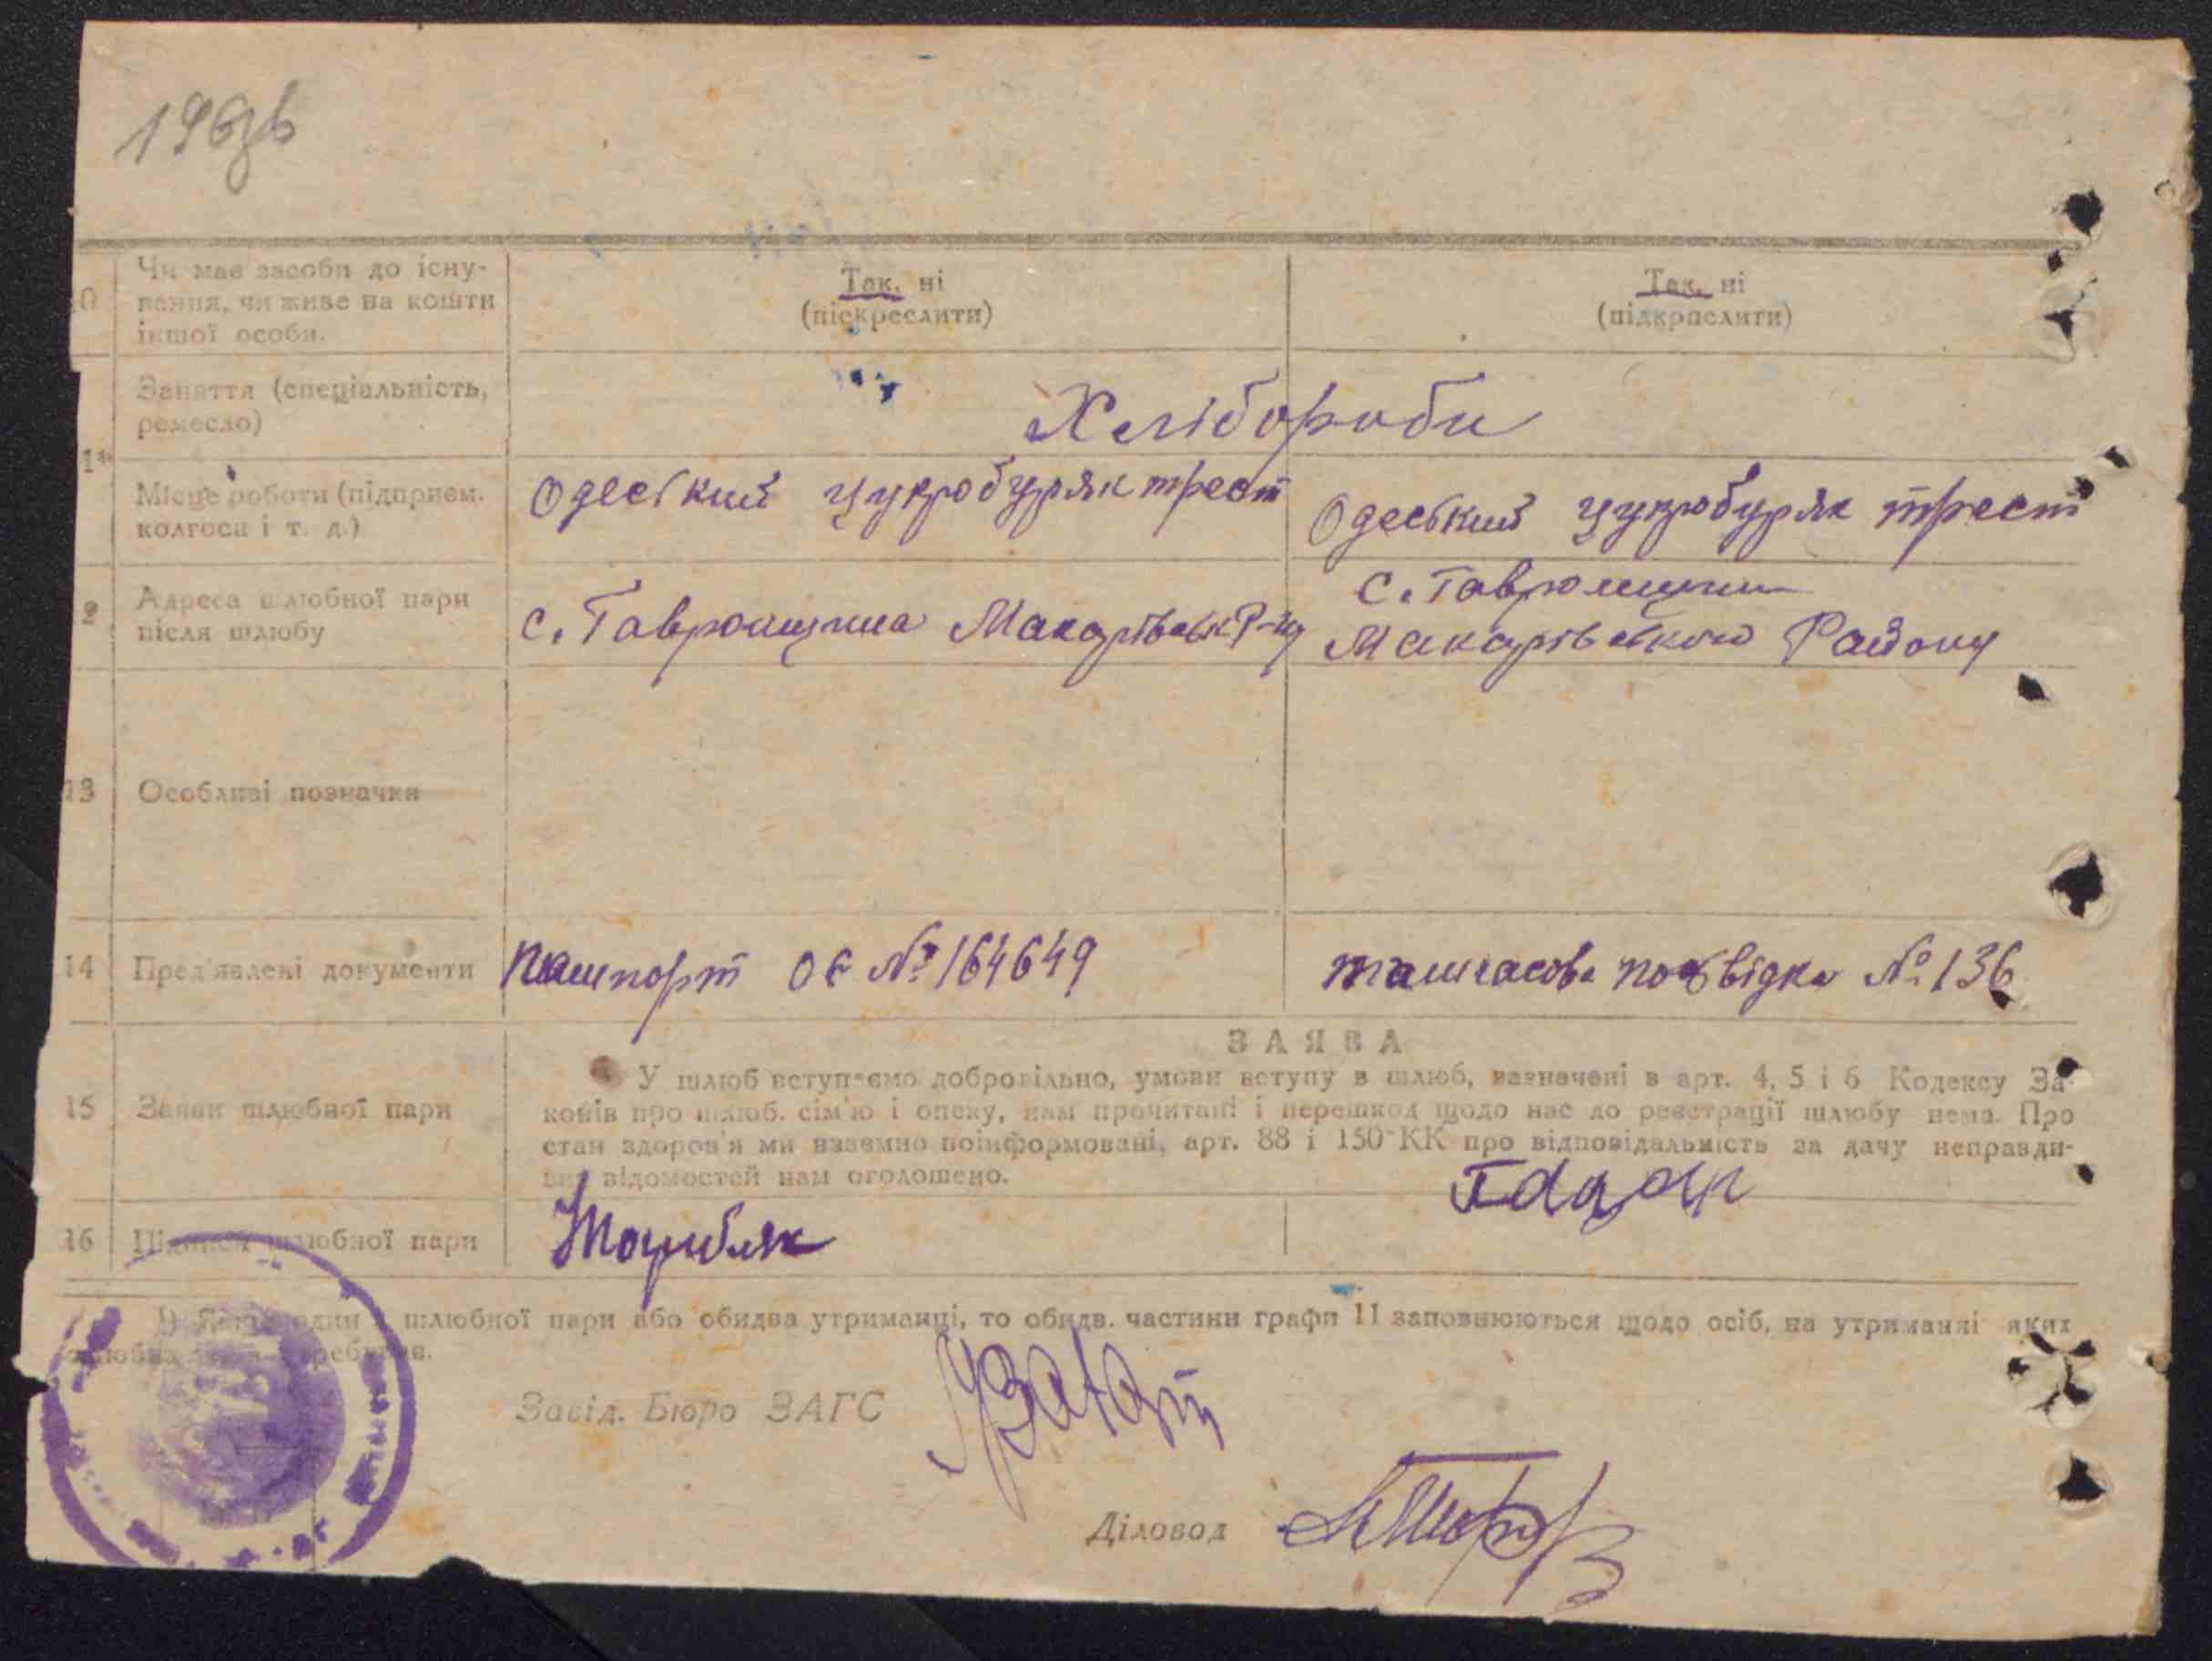 196зв
10 Чи має засоби до існу-
вання, чи живе на кошти
іншої особи.
Так, ні
(піскреслити)
Так, ні
(підкрпслити)
Заняття (спеціальність,
ремесло)
Хлібороби
11
Місце роботи (підприєм.
колгосп і т. д.)
Одеський цукробуряк трест
Одеський цукробуряк трест
2 Адреса шлюбної пари
після шлюбу
с. Гавронщина Макарівськ Р-ну
с. Гавронщина
Макарівського Району
13 Особливі позначки
14 Пред'явлені документи
пашпорт ОЄ № 164649
посвідка № 136
ЗАЯВА
15 Заяви шлюбної пари
У шлюб вступаємо добровільно, умови вступу в шлюб, зазначені в арт. 4, 5 і 6 Кодексу За-
конів про шлюб. сім'ю і опеку, нам прочитані і перешкод щодо нас до реєстрації шлюбу нема. Про
стан здоров'я ми взаємно поінформовані, арт. 88 і 150 КК про відповідальність за дачу неправди-
вих відомостей нам оголошено.
16 Підписи шлюбної пари
1) Якщо один з шлюбної пари або обидва утриманці, то обидв. частини графи 11 заповнюються щодо осіб, на утриманні яких
шлюбна пара перебував.
Завід. Бюро ЗАГС
Діловод